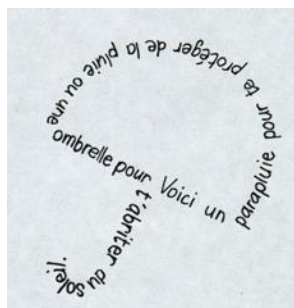 Voici un parapluie pour te protéger de la pluie ou une ombrelle pour t'abriter du soleil!